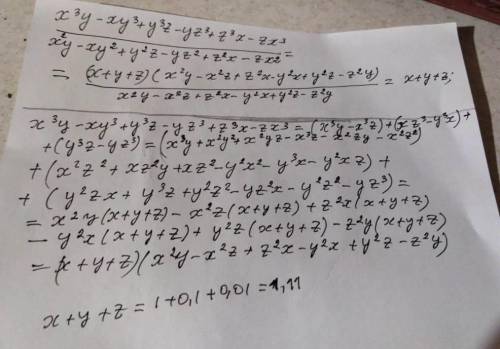 x³y - xy³ + y³z - yz³ + z³x - zx³
x²y - xy² + y²z - yz² + z²x - zx² =
= (x+y+z)(x²y - x²z + z²x - y²x + y²z - z²y) = x+y+z;
x²y - x²z + z²x - y²x + y²z - z²y
x³y - xy³ + y³z - yz³ + z³x - zx³ = (x³y - x³z) + (xz³ - y³x) +
+ (y³z - yz³) = (x³y + x²y² + x²yz - x³z - x²zy - x²z²)
+ (x²z² + xz²y + xz³ - y²x² - y³x - y²xz) +
+ (y²zx + y³z + y²z² - yz²x - y²z² - yz³) =
= x²y(x+y+z) - x²z(x+y+z) + z²x(x+y+z)
- y²x(x+y+z) + y²z(x+y+z) - z²y(x+y+z)
= (x+y+z)(x²y - x²z + z²x - y²x + y²z - z²y)
x+y+z = 1+0,1+0,01 = 1,11